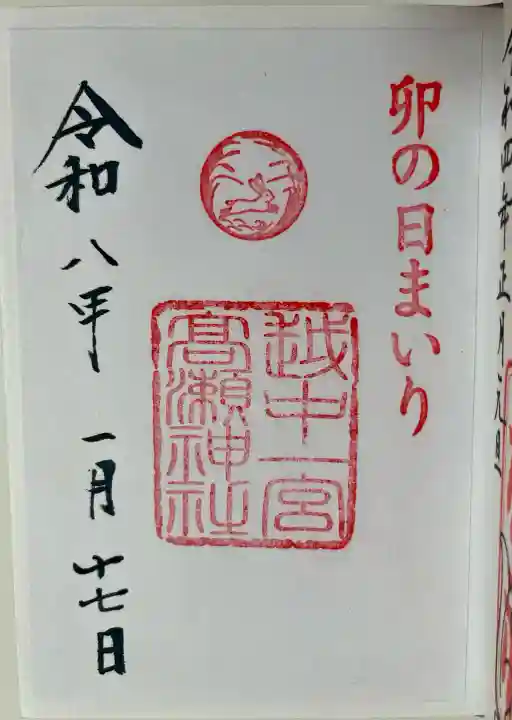 卯の日まいり
越中一宮
高瀬神社
令和八年 一月 十七日
令和四年正月元旦